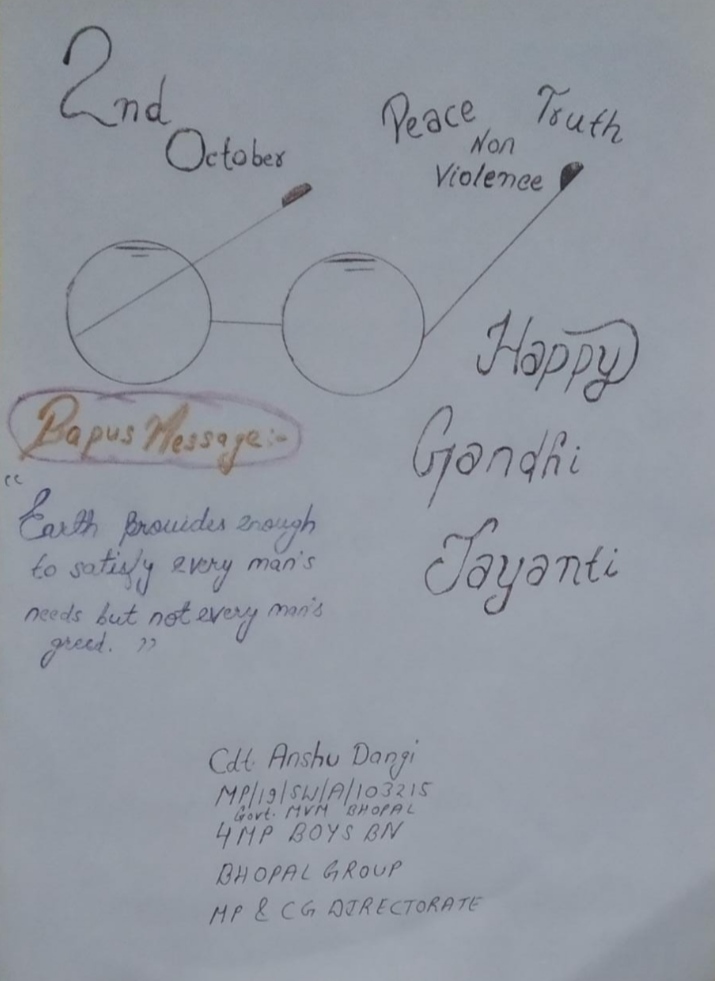 2nd
October
Peace Truth
Non
Violence
Happy
Gandhi
Jayanti
Bapus Message:-
“Earth provides enough
to satisfy every man's
needs but not every man's
greed.”
Cdt. Anshu Dangi
MP/19/SW/A/103215
Govt. MVM BHOPAL
4 MP BOYS BN
BHOPAL GROUP
MP & CG DIRECTORATE